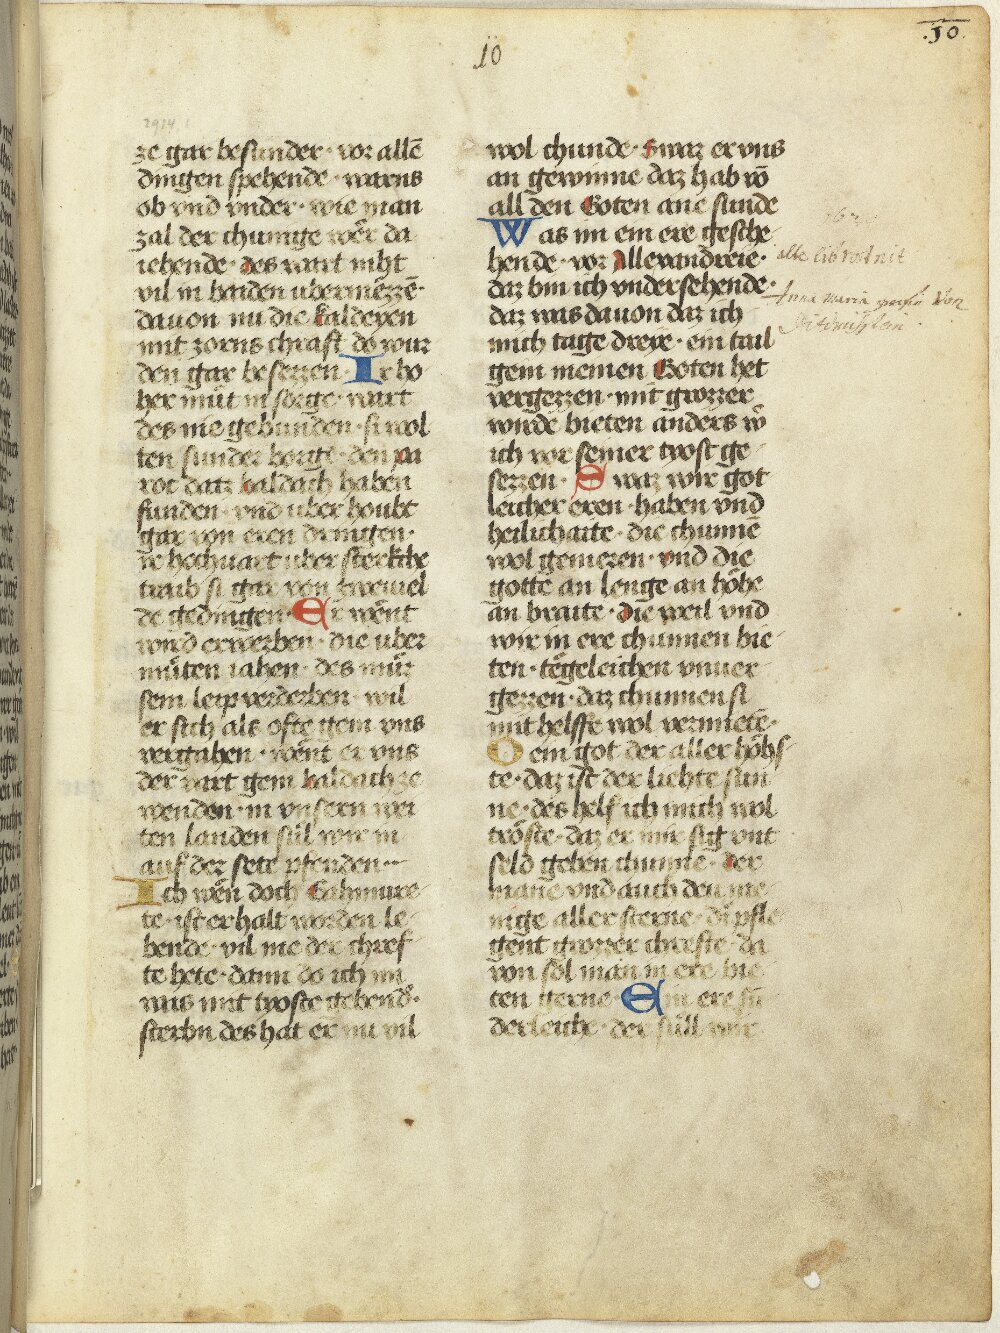 .10.
10
2914,1
ze gar besunder · vor allē
dingen spehende · warns
ob vnd vnder · wie man
zal der chunige wer da
iehende · des wart niht
vil in baiden vbermezze
dauon nu die kaldeyen
mit zorns chraft do wur
den gar besezzen · Ir ho
her mut in sorge · wart
des nie gebunden · si wol
ten sunder borge · den va
roc datz baldach haben
funden · vnd vber houbt
gar von eren dringen ·
ir hochuart vber sterkche
traib si gar von zweiuel
de gedingen · Er went
wird erwerben · die vber
müten iahen · des mür
sein leip verderben · wil
er sich als ofte gein vns
vergahen · went er vns
der vart gein baldach ze
wenden · in vnsern wer
ten landen sül wir in
auf der sete pfenden ·
Ich wen doch Gahmure
te · ist er halt worden le
bende · vil nie der chref
te hete · dann do ich im
was mit troste gebend ·
sterbn des hat er nu vil
wol chunde · Swaz er vns
an gewinne daz hab wo
all den Goten ane sunde
Was im ein ere gesche
hende · vor Allexandreie ·
daz bin ich vndersehende ·
daz was dauon daz ich
mich tage dreye · ein tail
gein meinen Goten het
vergezzen · mit grozzer
wirde bieten anders w
ich vor seiner trost ge
sezzen · Swaz wir got
leicher eren · haben vnd
heilichaite · die chunne
wol geniezen · vnd die
gotte an lenge an höhe
an braite · die weil vnd
wir in ere chunnen bie
ten · tegeleichen vnuer
gezzen · daz chunnen si
mit helffe wol vermiete ·
O ein got der aller höhs
te · daz ist der liehte sun
ne · des helf ich mich wol
tröste · daz er mir sig vnt
seld geben chunne · der
mane vnd auch den me
nige aller sterne · di pfle
gent grozzer chrefte · da
von sol man in ere bie
ten gerne · Ein ere su
derleiche · der süll wir
alle
Anna Maria von